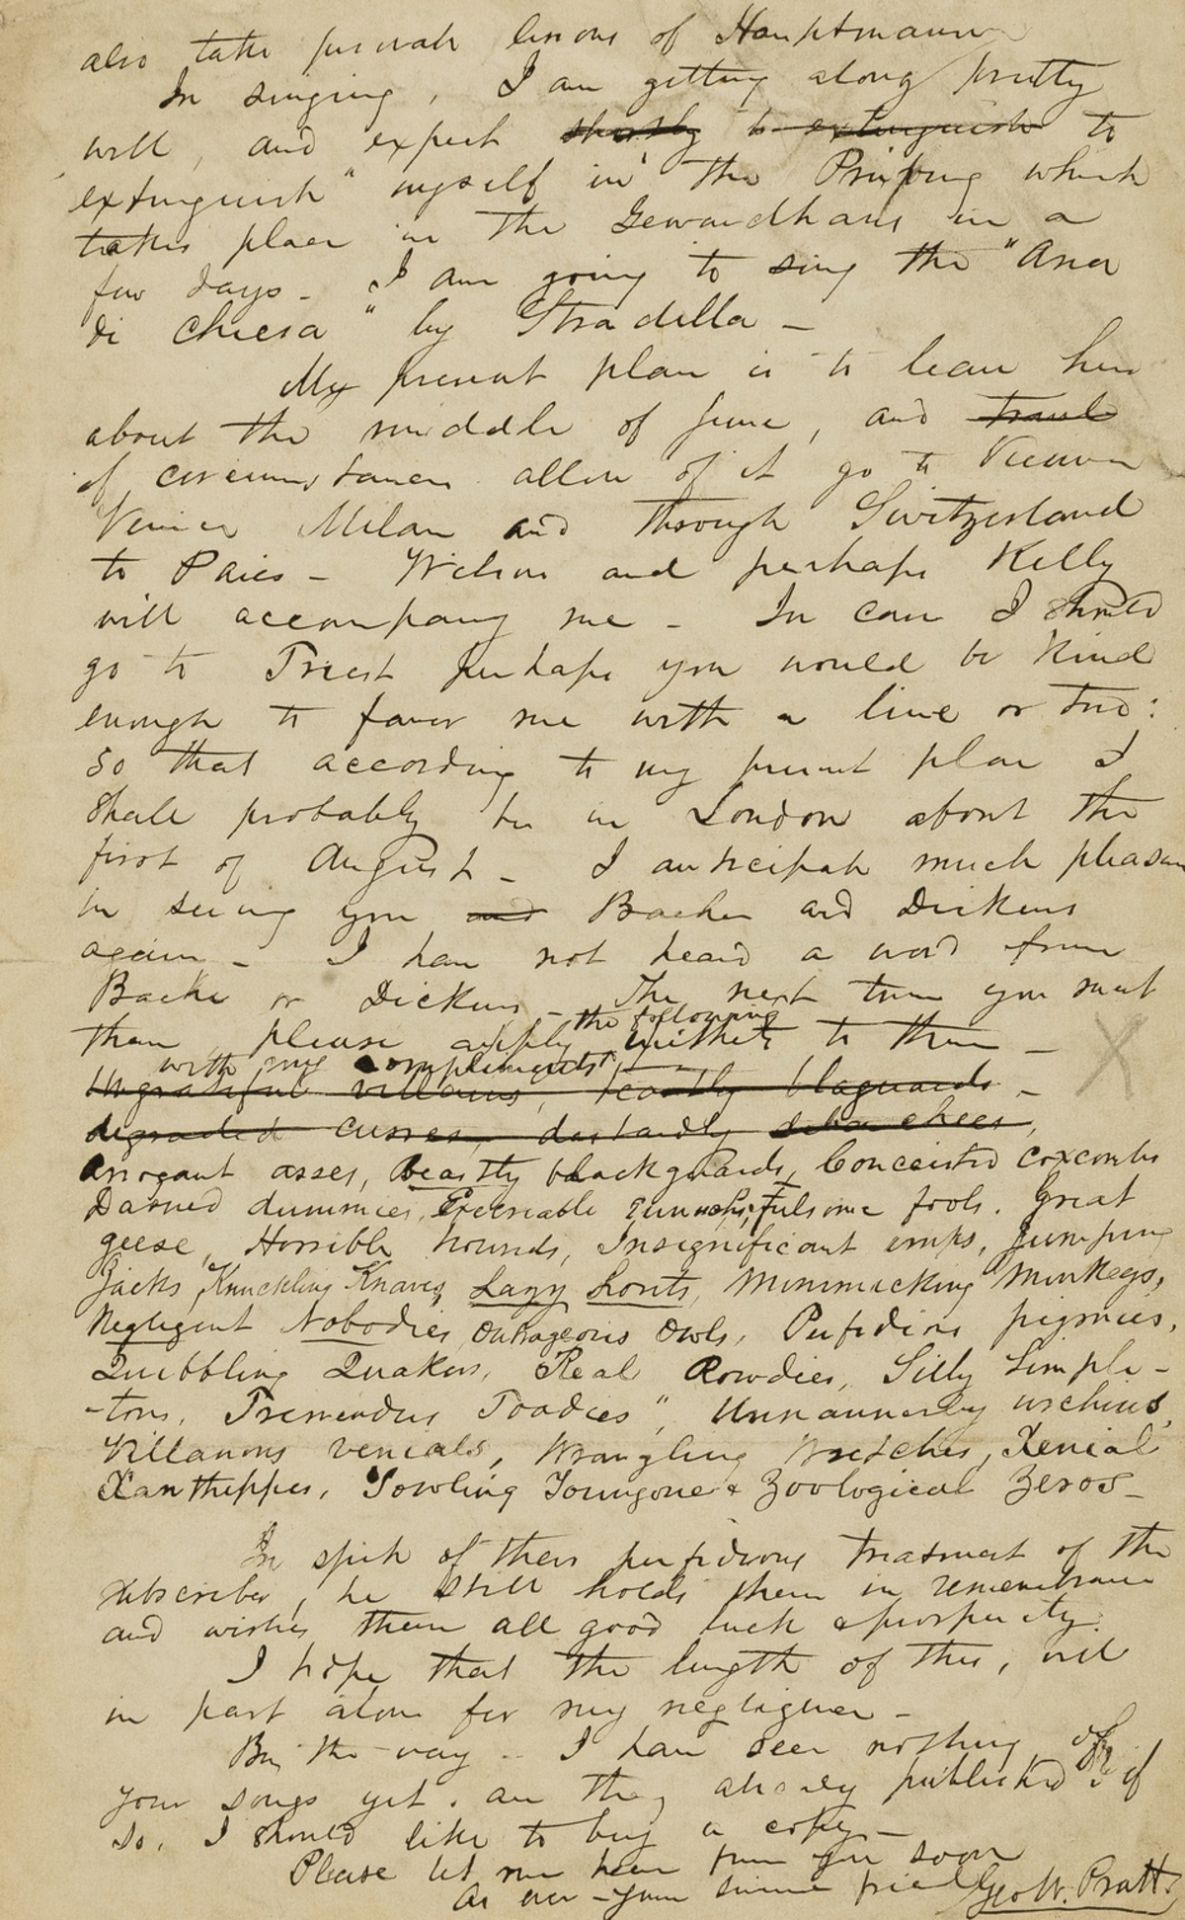 also take private lessons of Hauptmann
In singing, I am getting along pretty
well, and expect shortly to extinguish to
"extinguish" myself in the Prüfung which
takes place in the Gewandhaus in a
few days - I am going to sing the "Aria
di Chiesa" by Stradella -
My present plan is to leave here
about the middle of June, and travel
if circumstances allow of it go to Vienna
Venice Milan and through Switzerland
to Paris - Wilson and perhaps Kelly
will accompany me - In case I should
go to Triest perhaps you would be kind
enough to favor me with a line or two:
So that according to my present plan I
shall probably be in London about the
first of August - I anticipate much pleasure
in seeing you and Bache and Dickens
again - I have not heard a word from
Bache or Dickens - The next time you meet
them please apply the following epithets to them -
with my compliments
Ungrateful villains, beastly blaguards -
degraded curses, dastardly
Arrogant asses, Beastly blackguards, Conceited coxcombs
Darned dummies, Execrable eunuchs, Fulsome fools. Great
geese, Horrible hounds, Insignificant imps, Jumping
Jacks, Knuckling Knaves, Lazy Louts, Mimmicking Minkeys,
Negligent Nobodies, Outrageous Owls, Perfidius pigmies,
Quibbling Quakers, Real Rowdies, Silly Simple-
-tons, Tremendus Toadies", Unmannerly urchins,
Villanous venials, Wrangling Wretches, Xenial
Xanthippes, Yowling Youngones & Zoological Zeros -
In spite of their perfidious treatment of the
subscriber, he still holds them in remembrance
and wishes them all good luck & prosperity.
I hope that the length of this, will
in part atone for my negligence -
By the way - I have seen nothing of
your songs yet. are they already published? if
so, I should like to buy a copy -
Please let me hear from you soon
As ever - your sincere friend Geo W. Pratt.